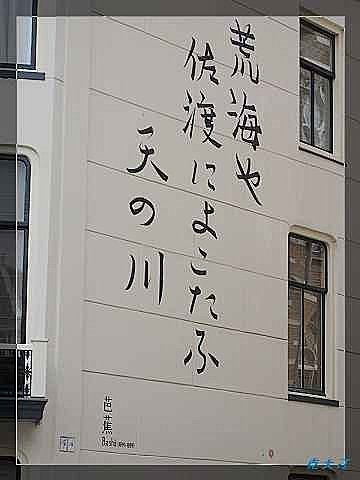 荒海や
佐渡によこたふ
天の川
芭蕉
Basho